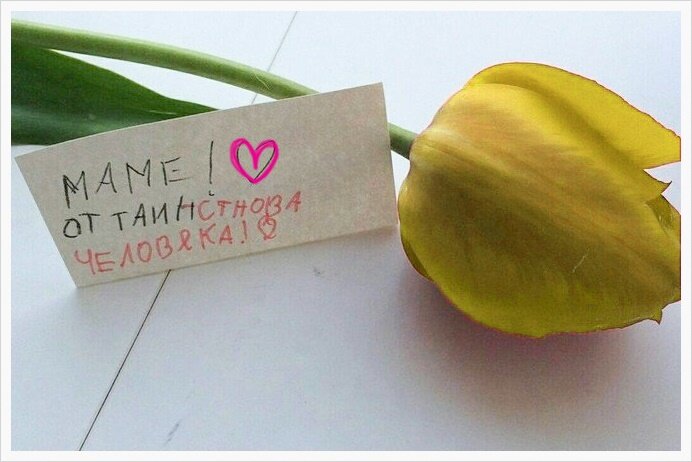 МАМЕ!
ОТ ТАИНСТНОВА
ЧЕЛОВЯКА!